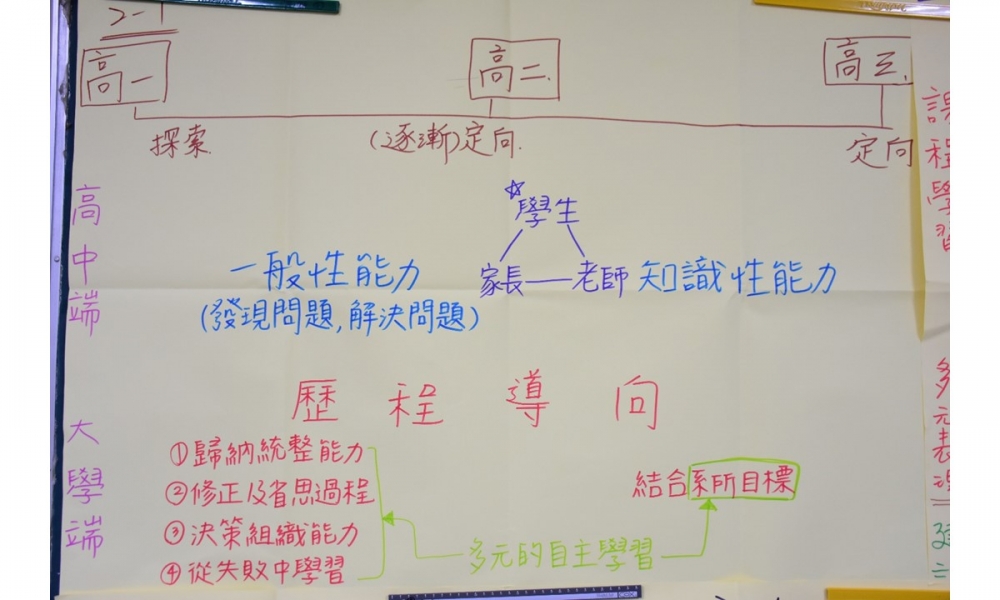 2-1
高一
高二
高三
探索
(逐漸)定向
定向
高中端
☆學生
家長——老師
一般性能力
(發現問題,解決問題)
知識性能力
大學端
歷程導向
①歸納統整能力
②修正及省思過程
③決策組織能力
④從失敗中學習
結合系所目標
多元的自主學習
課程學習
多元表現